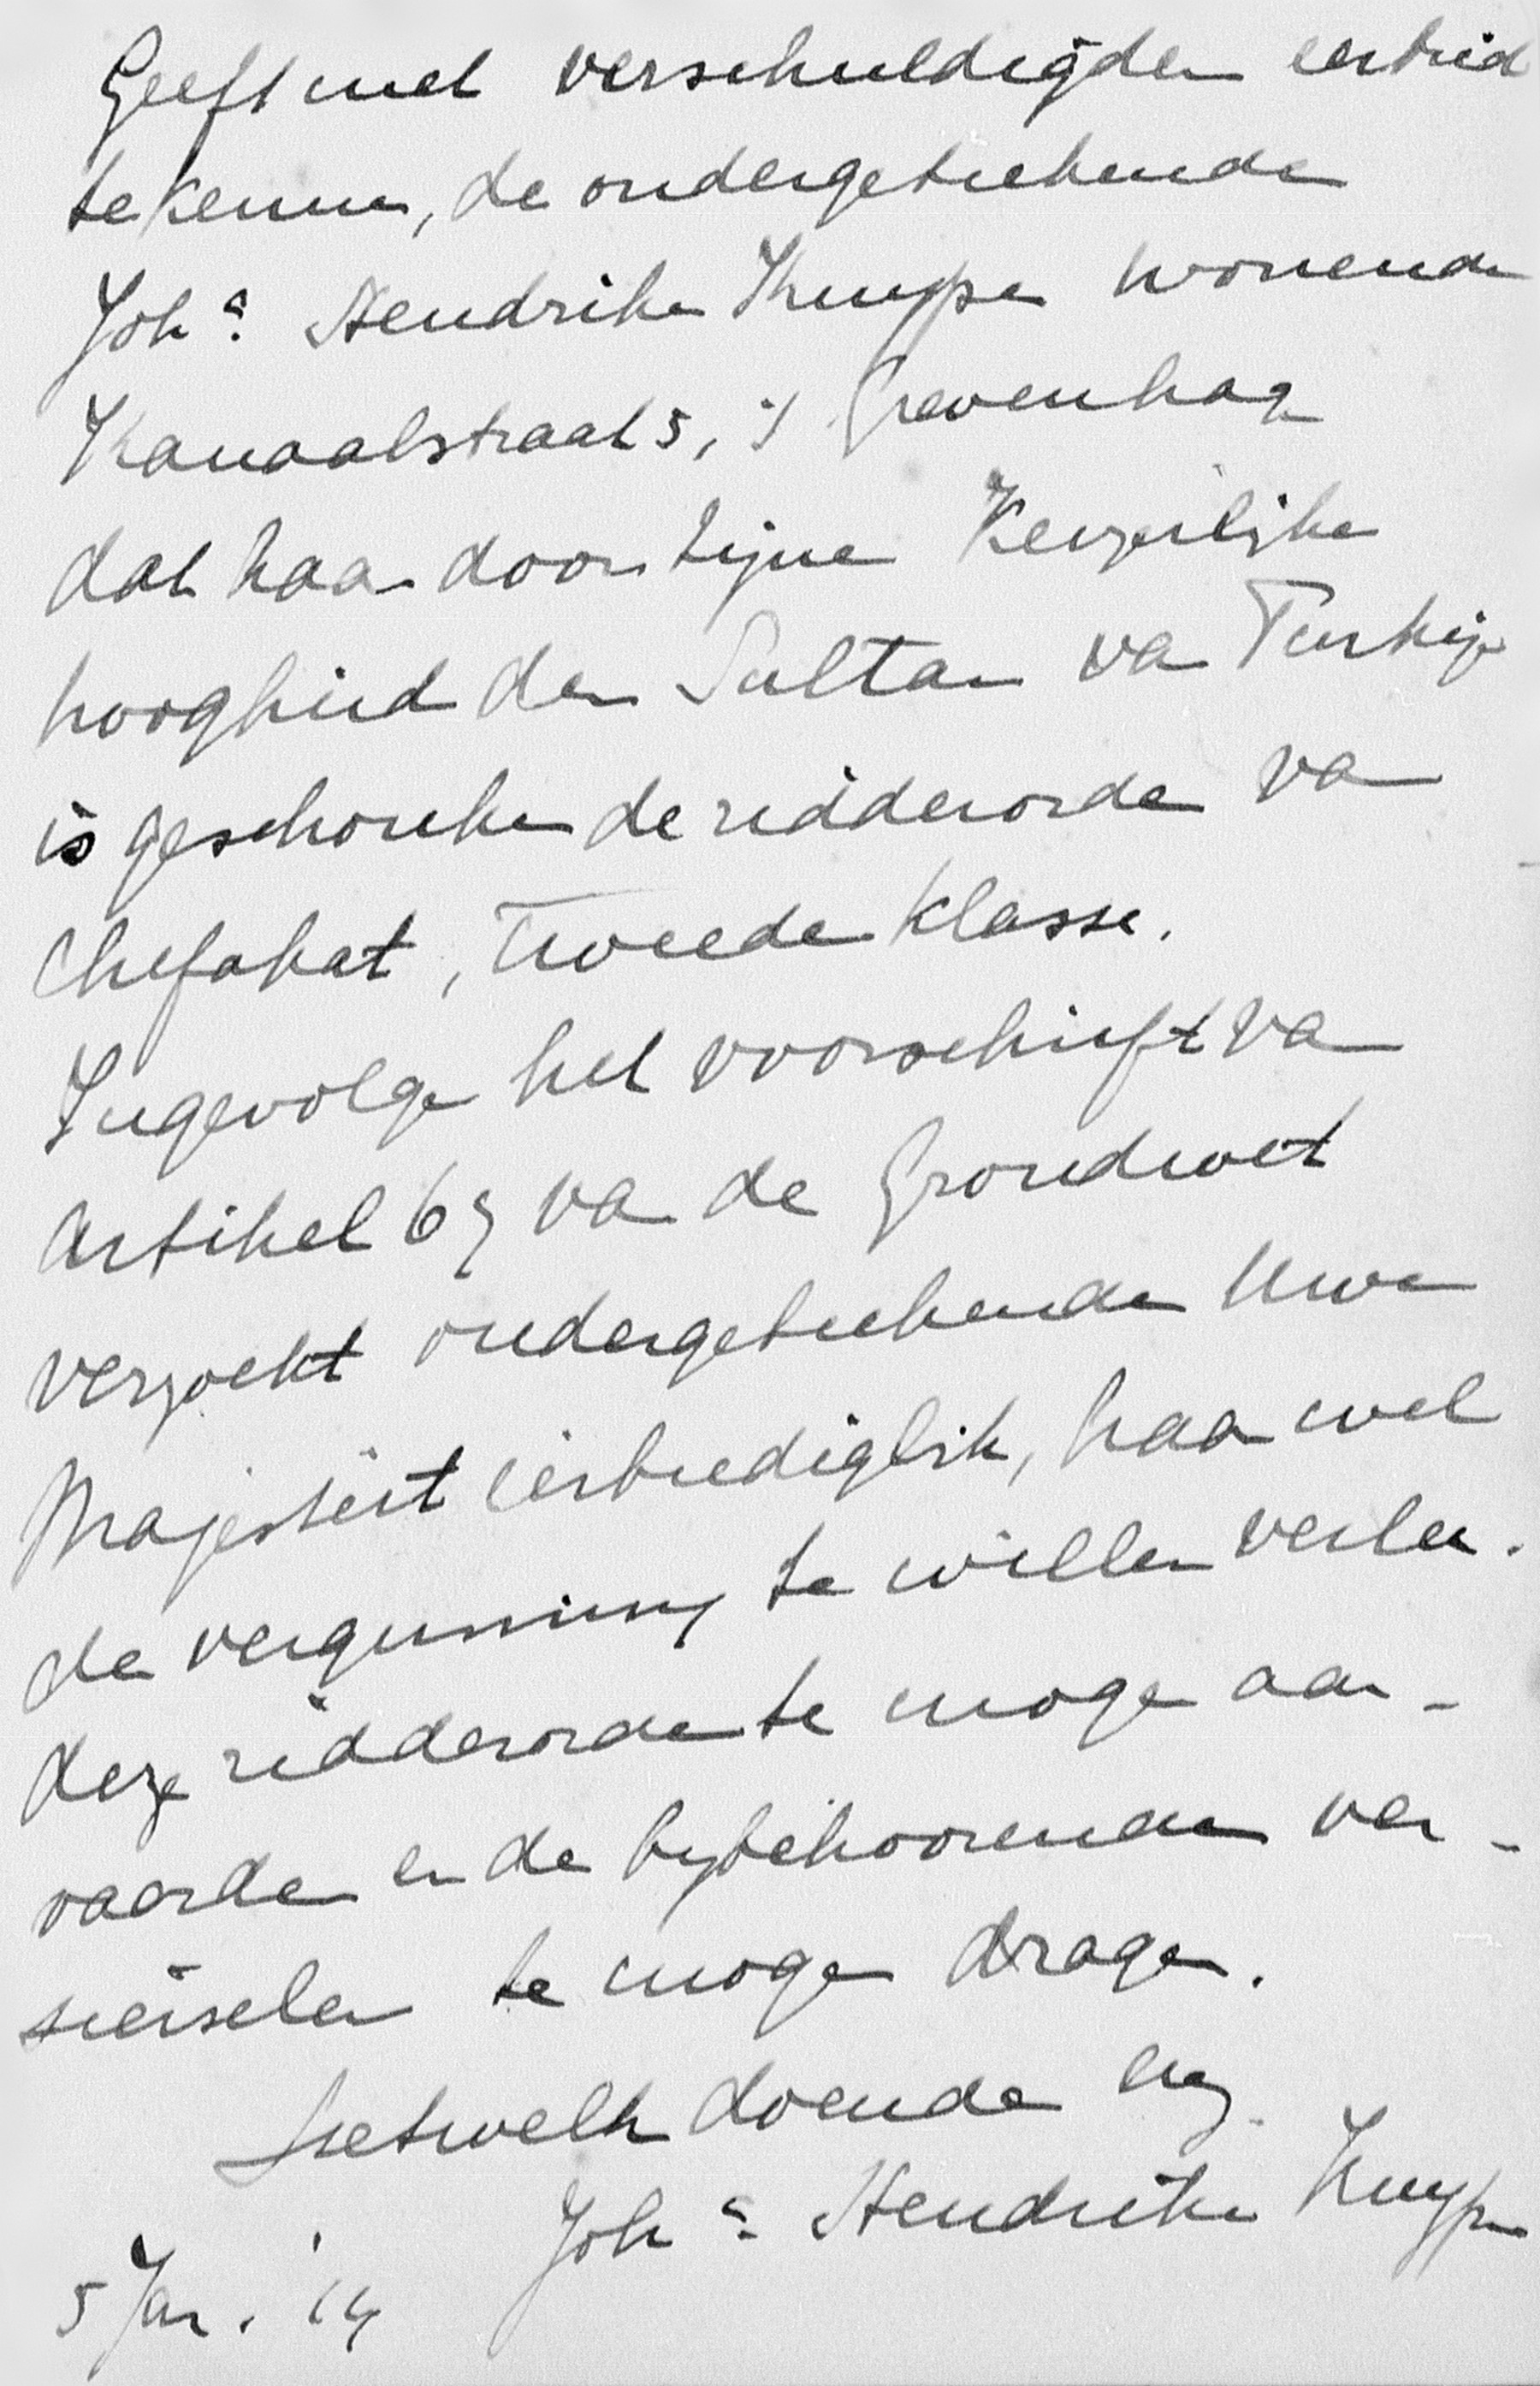 Geeft met verschuldigden eerbied
te kennen, de ondergeteekende
Joha Hendrika Kuyper wonende
Kanaalstraat 5, 's Gravenhage
dat haar door Zijne Keizerlijke
hoogheid den Sultan van Turkije
is geschonken de ridderorde van
Chefakat, tweede klasse.
Ingevolge het voorschrift van
Artikel 67 van de Grondwet
verzoekt ondergeteekende Uwe
Majesteit eerbiediglijk, haar wel
de vergunning te willen verleen.
deze ridderorde te mogen aan-
vaarden en de bijbehoorende ver-
sierselen te mogen dragen.
Hetwelk doende enz.
Joha Hendrika Kuyper
5 Jan. '14